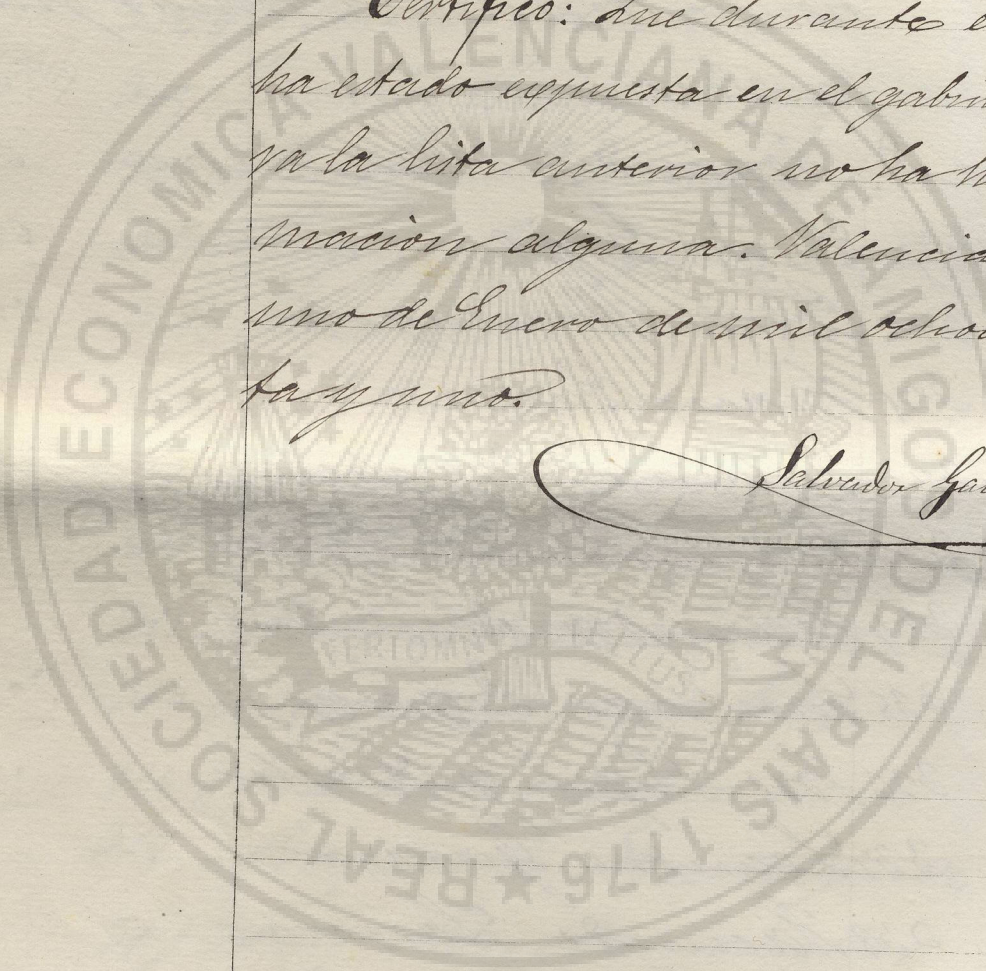 Certifico: Que durante e
ha estado expuesta en el gabin
va la lista anterior no ha h
macion alguna. Valencia
uno de Enero de mil ochoc
ta y uno.
Salvador Gar
REAL SOCIEDAD ECONOMICA VALENCIANA DE AMIGOS DEL PAIS 1776
FERT OMNIA TELLUS